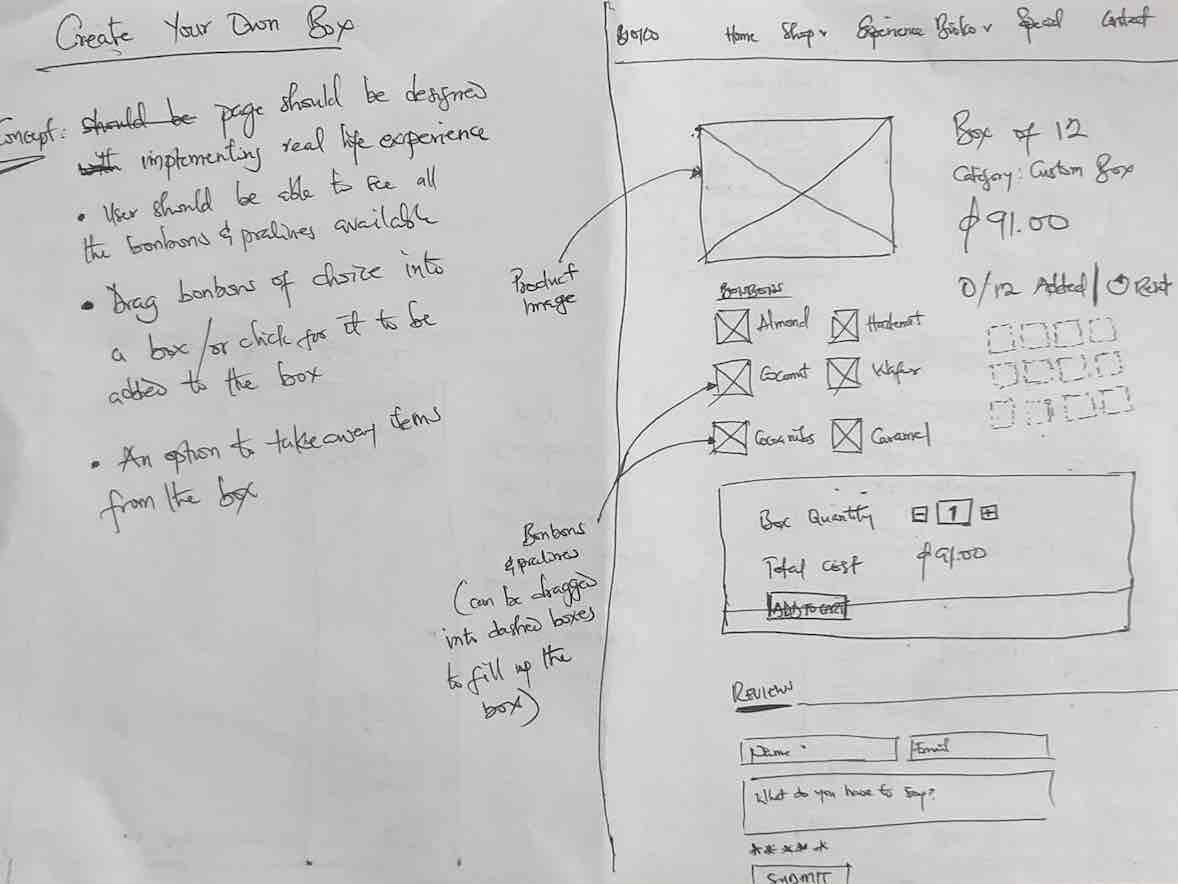 Create Your Own Box
Concept: should be page should be designed
with implementing real life experience
• User should be able to see all
the bonbons & pralines available
• Drag bonbons of choice into
a box/or click for it to be
added to the box
• An option to takeaway items
from the box
Product
Image
Bonbons
& pralines
(can be dragged
into dashed boxes
to fill up the
box)
Home Shop Experience Bioko Special Contact
Box of 12
Category: Custom Box
₵91.00
0/12 Added | Reset
BONBONS
Almond Hazelnut
Coconut Wafer
Cocoa nibs Caramel
Box Quantity - 1 +
Total cost ₵91.00
ADD TO CART
REVIEWS
Name Email
What do you have to say?
* * * * *
SUBMIT